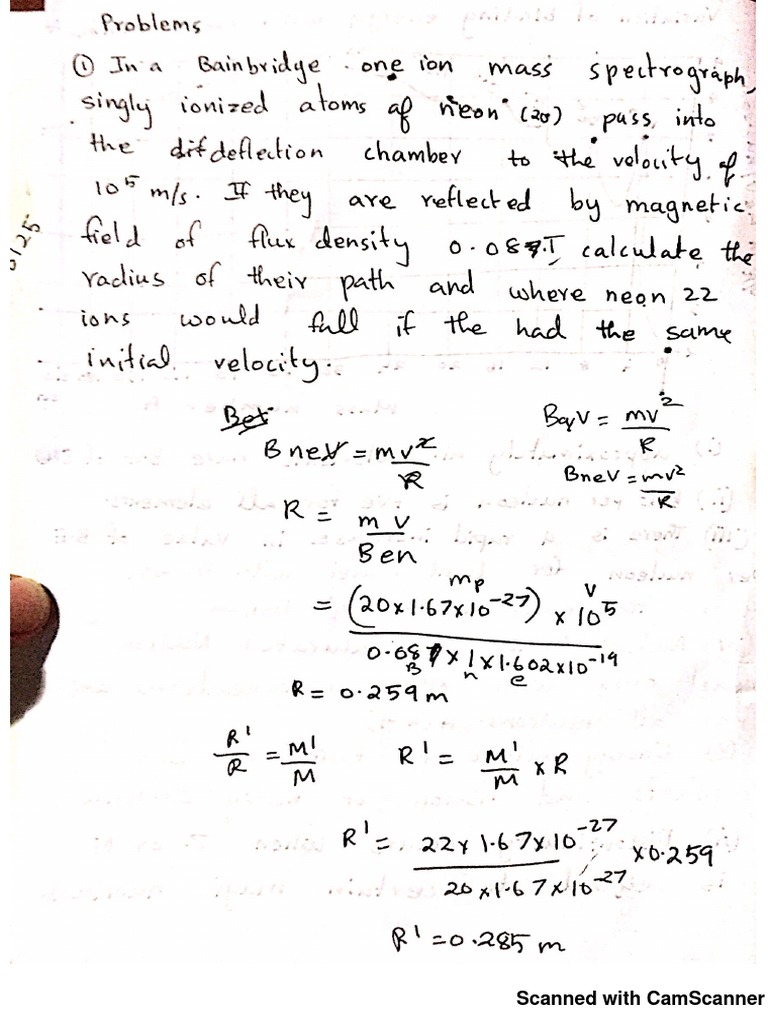 Problems
① In a Bainbridge one ion mass spectrograph,
singly ionized atoms of neon (20) pass into
the deflection chamber to the velocity of
10⁵ m/s. If they are reflected by magnetic
field of flux density 0.08 T, calculate the
radius of their path and where neon 22
ions would fall if the had the same
initial velocity.
BqV = mv²/R
BneV = mv²/R
BneV = mv²/R
R = m v / Ben
= (20×1.67×10⁻²⁷) × 10⁵
mp v
0.08 × 1 × 1.602×10⁻¹⁹
B n e
R = 0.259 m
R'/R = M'/M R' = M'/M × R
R' = 22 × 1.67×10⁻²⁷ / 20×1.67×10⁻²⁷ × 0.259
R' = 0.285 m
Scanned with CamScanner